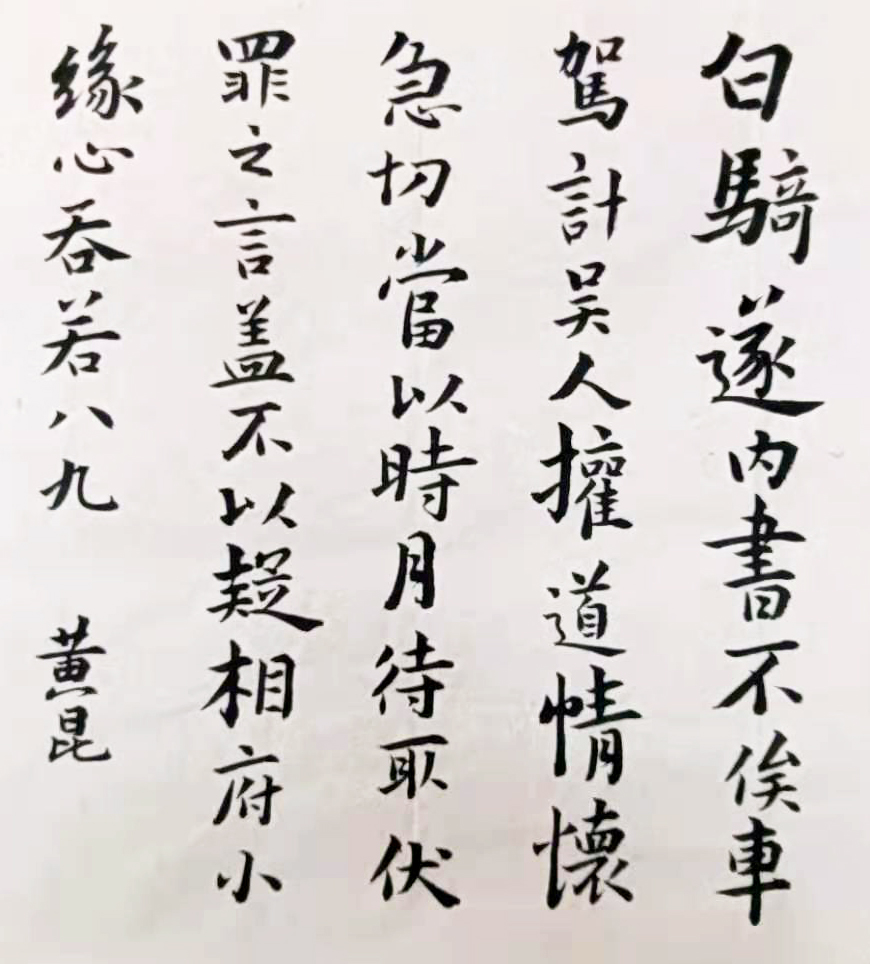 白騎遂内書不俟車
駕計吴人擁道情懷
急切當以時月待取伏
罪之言盖不以疑相府小
緣心吞若八九 黄昆